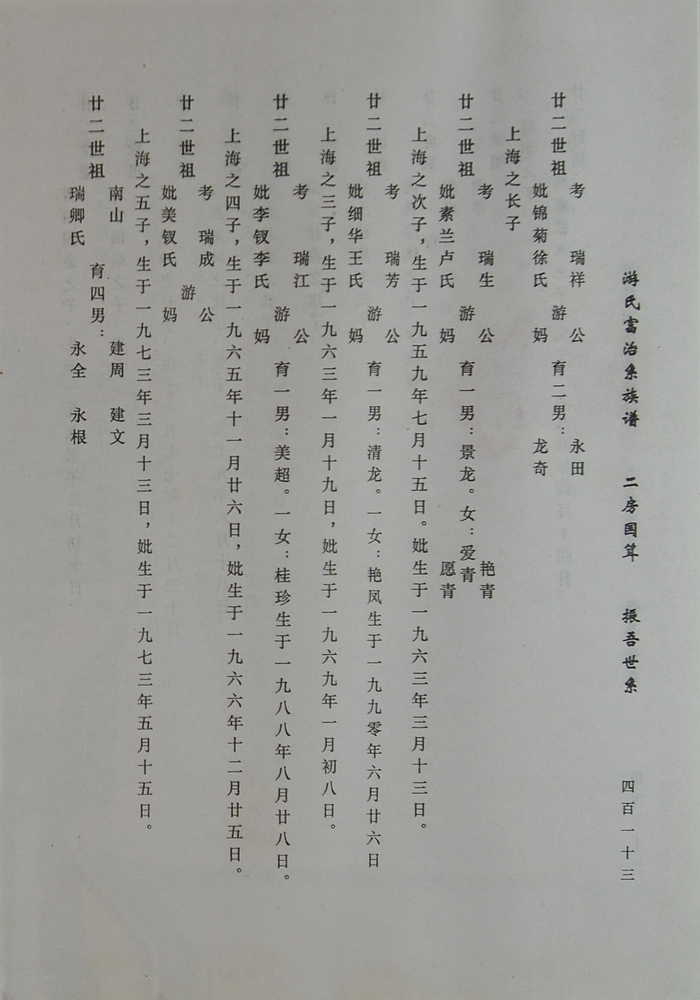 游氏富治系族谱 二房国茸 振吾世系 四百一十三
廿二世祖 考 瑞祥 公 游 妣锦菊徐氏 妈 育二男：永田 龙奇
上海之长子
廿二世祖 考 瑞生 公 游 妣素兰卢氏 妈 育一男：景龙。女：艳青 爱青 愿青
上海之次子，生于一九五九年七月十五日。妣生于一九六三年三月十三日。
廿二世祖 考 瑞芳 公 游 妣细华王氏 妈 育一男：清龙。一女：艳凤生于一九九零年六月廿六日
上海之三子，生于一九六三年一月十九日，妣生于一九六九年一月初八日。
廿二世祖 考 瑞江 公 游 妣李钗李氏 妈 育一男：美超。一女：桂珍生于一九八八年八月廿八日。
上海之四子，生于一九六五年十一月廿六日，妣生于一九六六年十二月廿五日。
廿二世祖 考 瑞成 公 游 妣美钗氏 妈
上海之五子，生于一九七三年三月十三日，妣生于一九七三年五月十五日。
廿二世祖 南山 瑞卿氏 育四男：建周 建文 永全 永根